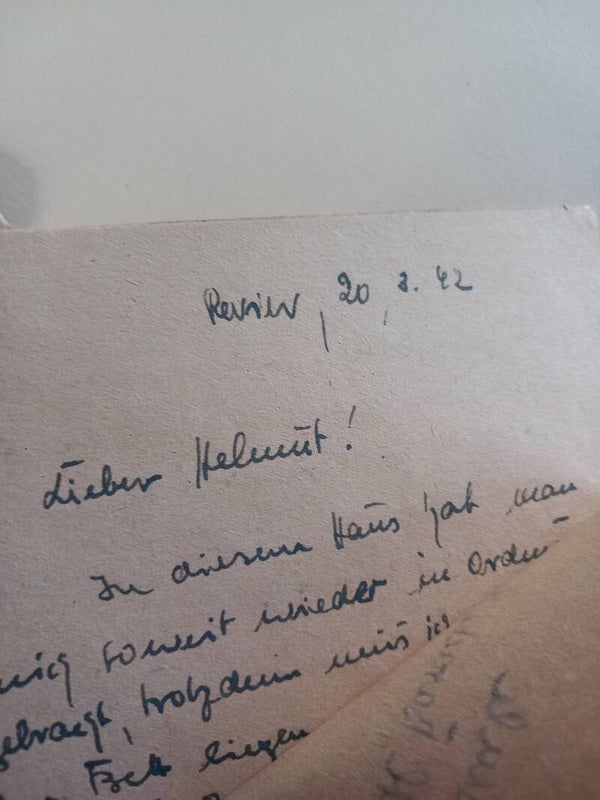 Revier, 20.3.42
Lieber Helmut!
In diesem Haus hat man
mich soweit wieder in Ordnu
gebracht, trotzdem muss ich
Bett liegen